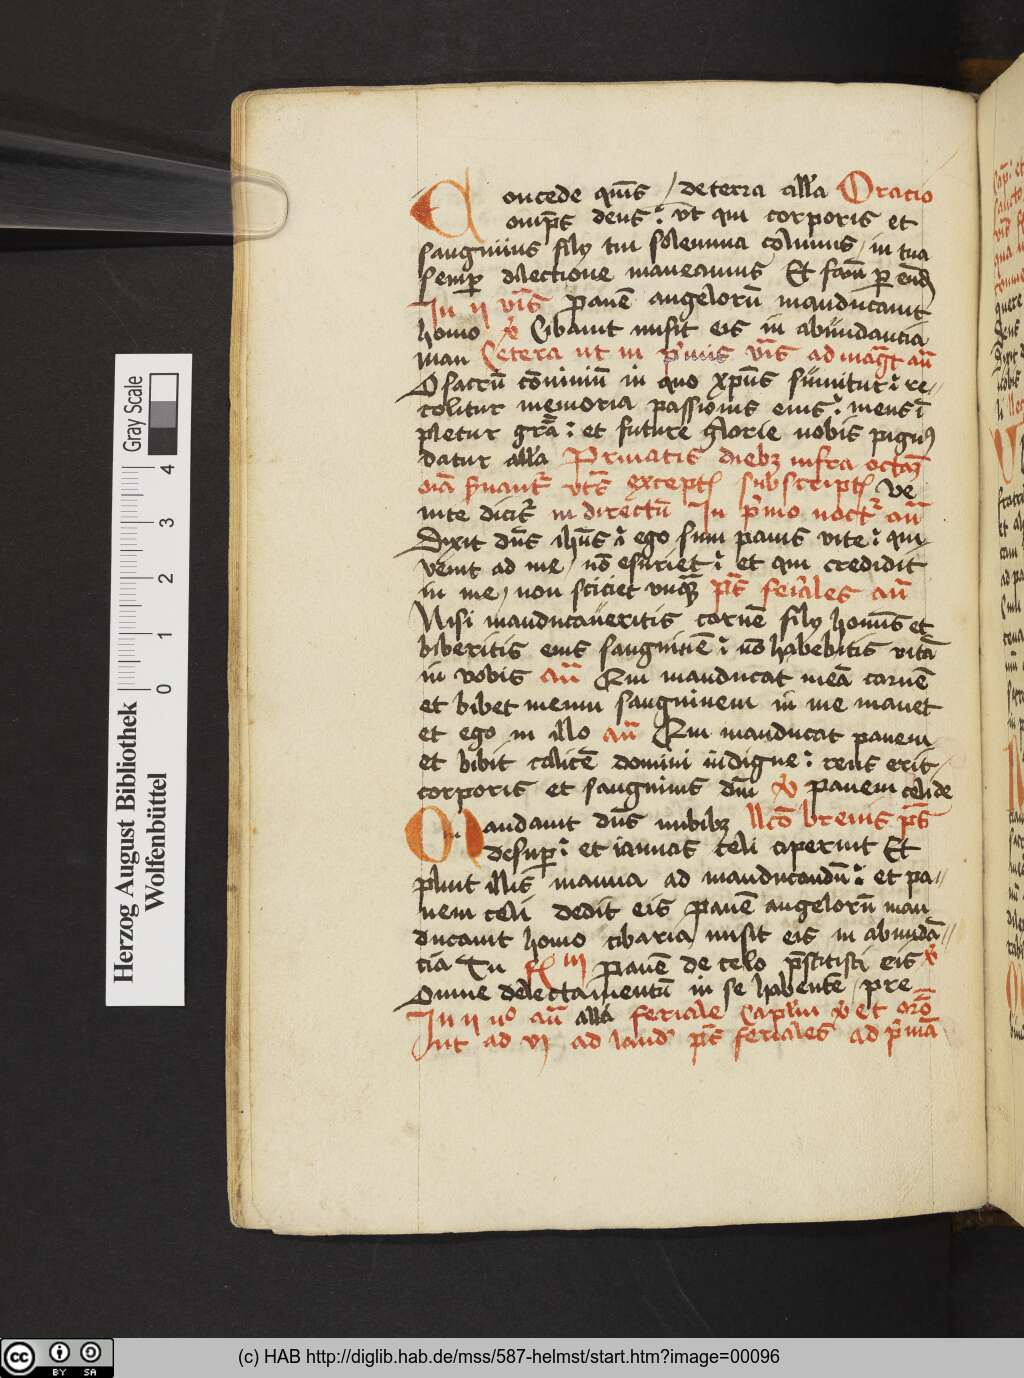 Concede quis / de terra alla Oracio
omps deus ut qui corporis et
sanguinis filij tui solemnia colimus in tua
semper dilectione maneamus Et famu per eund
In ij vris panē angelorū manducauit
homo Cibaria misit eis in abundancia
man Cetera ut in primis vris ad magt an
O sacrū cōuiuiū in quo xpūs sumitur re-
colitur memoria passionis eius mens ī
pletur gra et future glorie nobis pignus
datur alla Priuatis diebz infra octaz
oīa seruant except subscript Ve
nite dicit in directū In primo noct an
Dixit dns ihus ego sum panis vite qui
venit ad me nō esuriet et qui credidit
in me non sciciet vnqm ps feriales an
Nisi manducaueritis carnē filij homis et
biberitis eius sanguinē nō habebitis vitā
in vobis an Qui manducat meā carnē
et bibet meum sanguinem in me manet
et ego in illo an Qui manducat panem
et bibit calicē domini indigne reus erit
corporis et sanguinis dni Panem celi de
Mandauit dns nubibz llco breuis ps
desuper et ianuas celi aperuit Et
pluit illis manna ad manducandū et pa-
nem celi dedit eis panē angelorū man
ducauit homo cibaria misit eis in abundā-
cia Tu iij Panē de celo prestitisti eis
Omne delectamentū in se habentē pre
In ij no an alla feriale Caplm et orō
Int ad vj ad laud ps feriales ad primā
Herzog August Bibliothek
Wolfenbüttel
Gray Scale
0 1 2 3 4
cc BY SA
(c) HAB http://diglib.hab.de/mss/587-helmst/start.htm?image=00096